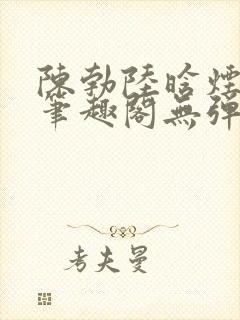 陳勃陸晗煙
筆趣閣無彈
考夫曼